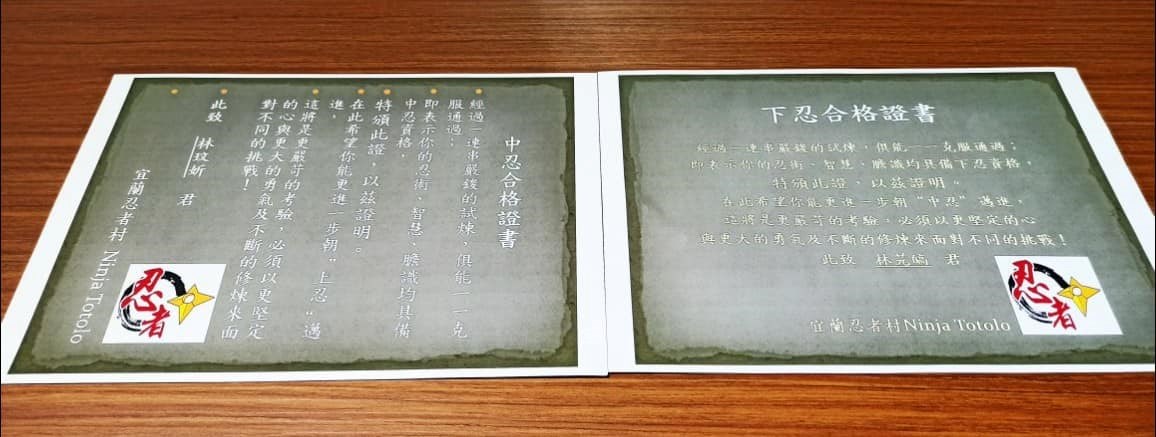 中忍合格證書
經過一連串嚴鍛的試煉，俱能一一克
服通過；
即表示你的忍術、智慧、膽識均具備
中忍資格，
特頒此證，以茲證明。
在此希望你能更進一步朝“上忍“邁
進，
這將是更嚴苛的考驗，必須以更堅定
的心與更大的勇氣及不斷的修煉來面
對不同的挑戰！
此致 林玟妡 君
宜蘭忍者村 Ninja Totolo
忍者
下忍合格證書
經過一連串嚴鍛的試煉，俱能一一克服通過；
即表示你的忍術、智慧、膽識均具備下忍資格，
特頒此證，以茲證明。
在此希望你能更進一步朝“中忍”邁進，
這將是更嚴苛的考驗，必須以更堅定的心
與更大的勇氣及不斷的修煉來面對不同的挑戰！
此致 林芫 君
宜蘭忍者村Ninja Totolo
忍者